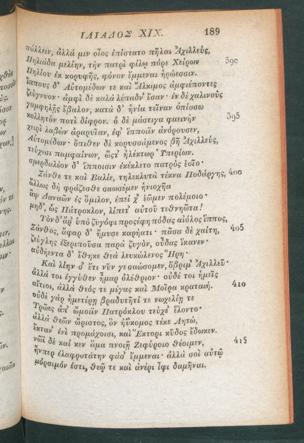 ΙΛΙΑΔΟΣ ΧΙΧ. 189
πάλλειν, ἀλλά μιν οἶος ἐπίστατο πῆλαι Ἀχιλλεύς,
Πηλιάδα μελίην, τὴν πατρὶ φίλῳ πόρε Χείρων 390
Πηλίου ἐκ κορυφῆς, φόνον ἔμμεναι ἡρώεσσιν.
ἵππους δ' Αὐτομέδων τε καὶ Ἄλκιμος ἀμφιέποντες
ζεύγνυον· ἀμφὶ δὲ καλὰ λέπαδν' ἕσαν· ἐν δὲ χαλινοὺς
γαμφηλῇς ἔβαλον, κατὰ δ' ἡνία τεῖναν ὀπίσσω
κολλητὸν ποτὶ δίφρον. ὁ δὲ μάστιγα φαεινὴν 395
χειρὶ λαβὼν ἀραρυῖαν, ἐφ' ἵπποιϊν ἀνόρουσεν,
Αὐτομέδων· ὄπιθεν δὲ κορυσσάμενος βῆ Ἀχιλλεύς,
τεύχεσι παμφαίνων, ὥστ' ἠλέκτωρ Ὑπερίων.
σμερδαλέον δ' ἵπποισιν ἐκέκλετο πατρὸς ἑοῖο·
Ξάνθε τε καὶ Βαλίε, τηλεκλυτὰ τέκνα Ποδάργης, 400
ἄλλως δὴ φράζεσθε σαωσέμεν ἡνιοχῆα
ἂψ Δαναῶν ἐς ὅμιλον, ἐπεί χ' ἑῶμεν πολέμοιο·
μηδ', ὡς Πάτροκλον, λίπετ' αὐτόθι τεθνηῶτα!
Τὸν δ' ἄρ' ὑπὸ ζυγόφι προσέφη πόδας αἰόλος ἵππος,
Ξάνθος, ἄφαρ δ' ἤμυσε καρήατι· πᾶσα δὲ χαίτη, 405
ζεύγλης ἐξεριποῦσα παρὰ ζυγὸν, οὖδας ἵκανεν·
αὐδήεντα δ' ἔθηκε θεὰ λευκώλενος Ἥρη·
Καὶ λίην σ' ἔτι νῦν γε σαώσομεν, ὄβριμ' Ἀχιλλεῦ·
ἀλλά τοι ἐγγύθεν ἦμαρ ὀλέθριον· οὐδέ τοι ἡμεῖς
αἴτιοι, ἀλλὰ θεός τε μέγας καὶ Μοῖρα κραταιή. 410
οὐδὲ γὰρ ἡμετέρῃ βραδυτῆτί τε νωχελίῃ τε
Τρῶες ἀπ' ὤμοιϊν Πατρόκλου τεύχε' ἕλοντο·
ἀλλὰ θεῶν ὤριστος, ὃν ἠΰκομος τέκε Λητώ,
ἔκταν' ἐνὶ προμάχοισι, καὶ Ἕκτορι κῦδος ἔδωκεν.
νῶϊ δὲ καί κεν ἅμα πνοιῇ Ζεφύροιο θέοιμεν, 415
ἥνπερ ἐλαφροτάτην φάσ' ἔμμεναι· ἀλλὰ σοὶ αὐτῷ
μόρσιμόν ἐστι, θεῷ τε καὶ ἀνέρι ἶφι δαμῆναι.